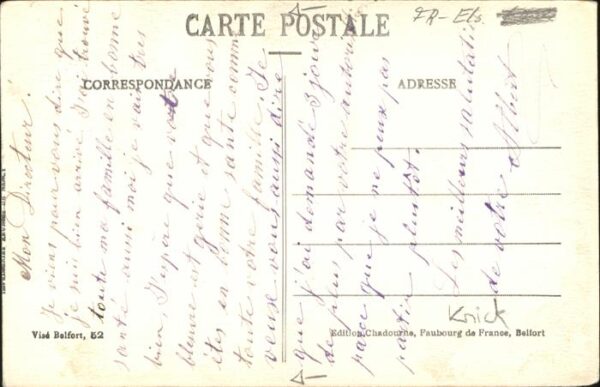 CARTE POSTALE
FR-Els.
CORRESPONDANCE
ADRESSE
Mon Directeur.
Je viens pour vous dire que
je suis bien arrivé J'ai trouvé
toute ma famille en bonne
santé aussi moi je vais tres
bien, J'espère que votre
blessure est guerie et que vous
êtes en bonne santé comme
toute votre famille. Je
veux vous aussi dire
que j'ai demandé 3 jours
de plus par votre autorisé
parce que je ne peux pas
partir plutôt.
Les meilleurs salutati
de votre Albert
Knick
Visé Belfort, 52
Edition Chadourne, Faubourg de France, Belfort